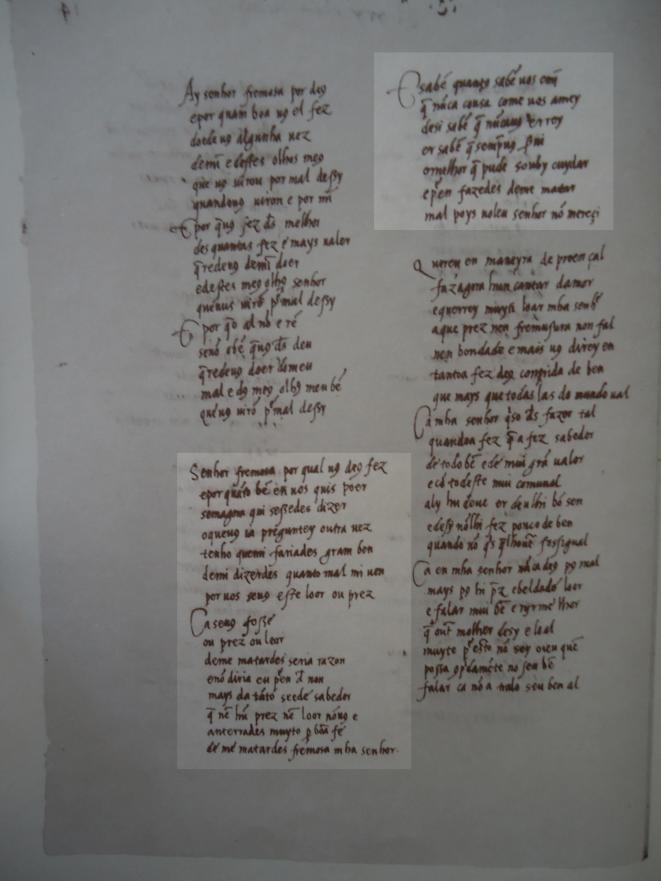 Ay senhor fremosa por deg
e por quam boa ug el fez
doede ug algunha uez
demī e destes olhos meg
que ug uirou por mal dessy
quandoug uiron e por mī
E por q̄ug fez ds̄ melhor
des quantas fez e mays ualor
q̄redeug demī doer
edestes meg olhg senhor
quenus uirō pr̄ mal dessy
E por q̄o al nō e rē
senō obē q̄ug ds̄ deu
q̄redeug doer domeu
mal e dg meg olhg meu bē
quēug uirō pr̄ mal dessy
Senhor fremosa por qual ug deg fez
e por quāto bē en uos quis poer
semagora qui sessedes dizer
oqueug ia preguntey outra uez
tenho quemi fariades gram ben
demi dizerdes quanto mal mi uen
por uos seug este loor ou prez
Ca seug fosse
ou prez ou loor
deme matardes seria razon
enō diria eu pr̄en d non
mays da tātō seede sabedor
q̄ nē hū prez nē loor nōug e
anterrades muyto p bōa fe
de me matardes fremosa mha senhor.
E sabē quantg sabē uos em
q̄ nūca cousa come uos amey
desi sabē q̄ nūcaug errey
er sabē q̄ sempug
omelhor q̄ pude souby cuydar
e pr̄en fazedes deme matar
mal poys noleu senhor nō mereçi
Quereu en maneyra de proençal
fazagora hun cantar damor
e querrey muyti loar mha senhr̄
aque prez nen fremusura non fal
nen bondade e mais ug direy en
tanto a fez deg comprida de ben
que mays que todas las do mundo ual
Ca mha senhor q̄so ds̄ fazer tal
quandoa fez q̄ a fez sabedor
de todo bē e de mui grā ualor
e cō todeste mui comunal
aly hu deue er deulhi bō sen
e desy nōlhi fez pouco de ben
quando nō q̄s q̄lhoutr̄ fossigual
Ca en mha senhor nūca deg pg mal
mays pg hi pr̄z e beldade loor
e falar mui bē e riir melhor
q̄ outr̄ molher desy e leal
muyto pr̄ esto nō sey oieu quē
possa cōpdamēte no seu bē
falar ca nō a tralo seu ben al